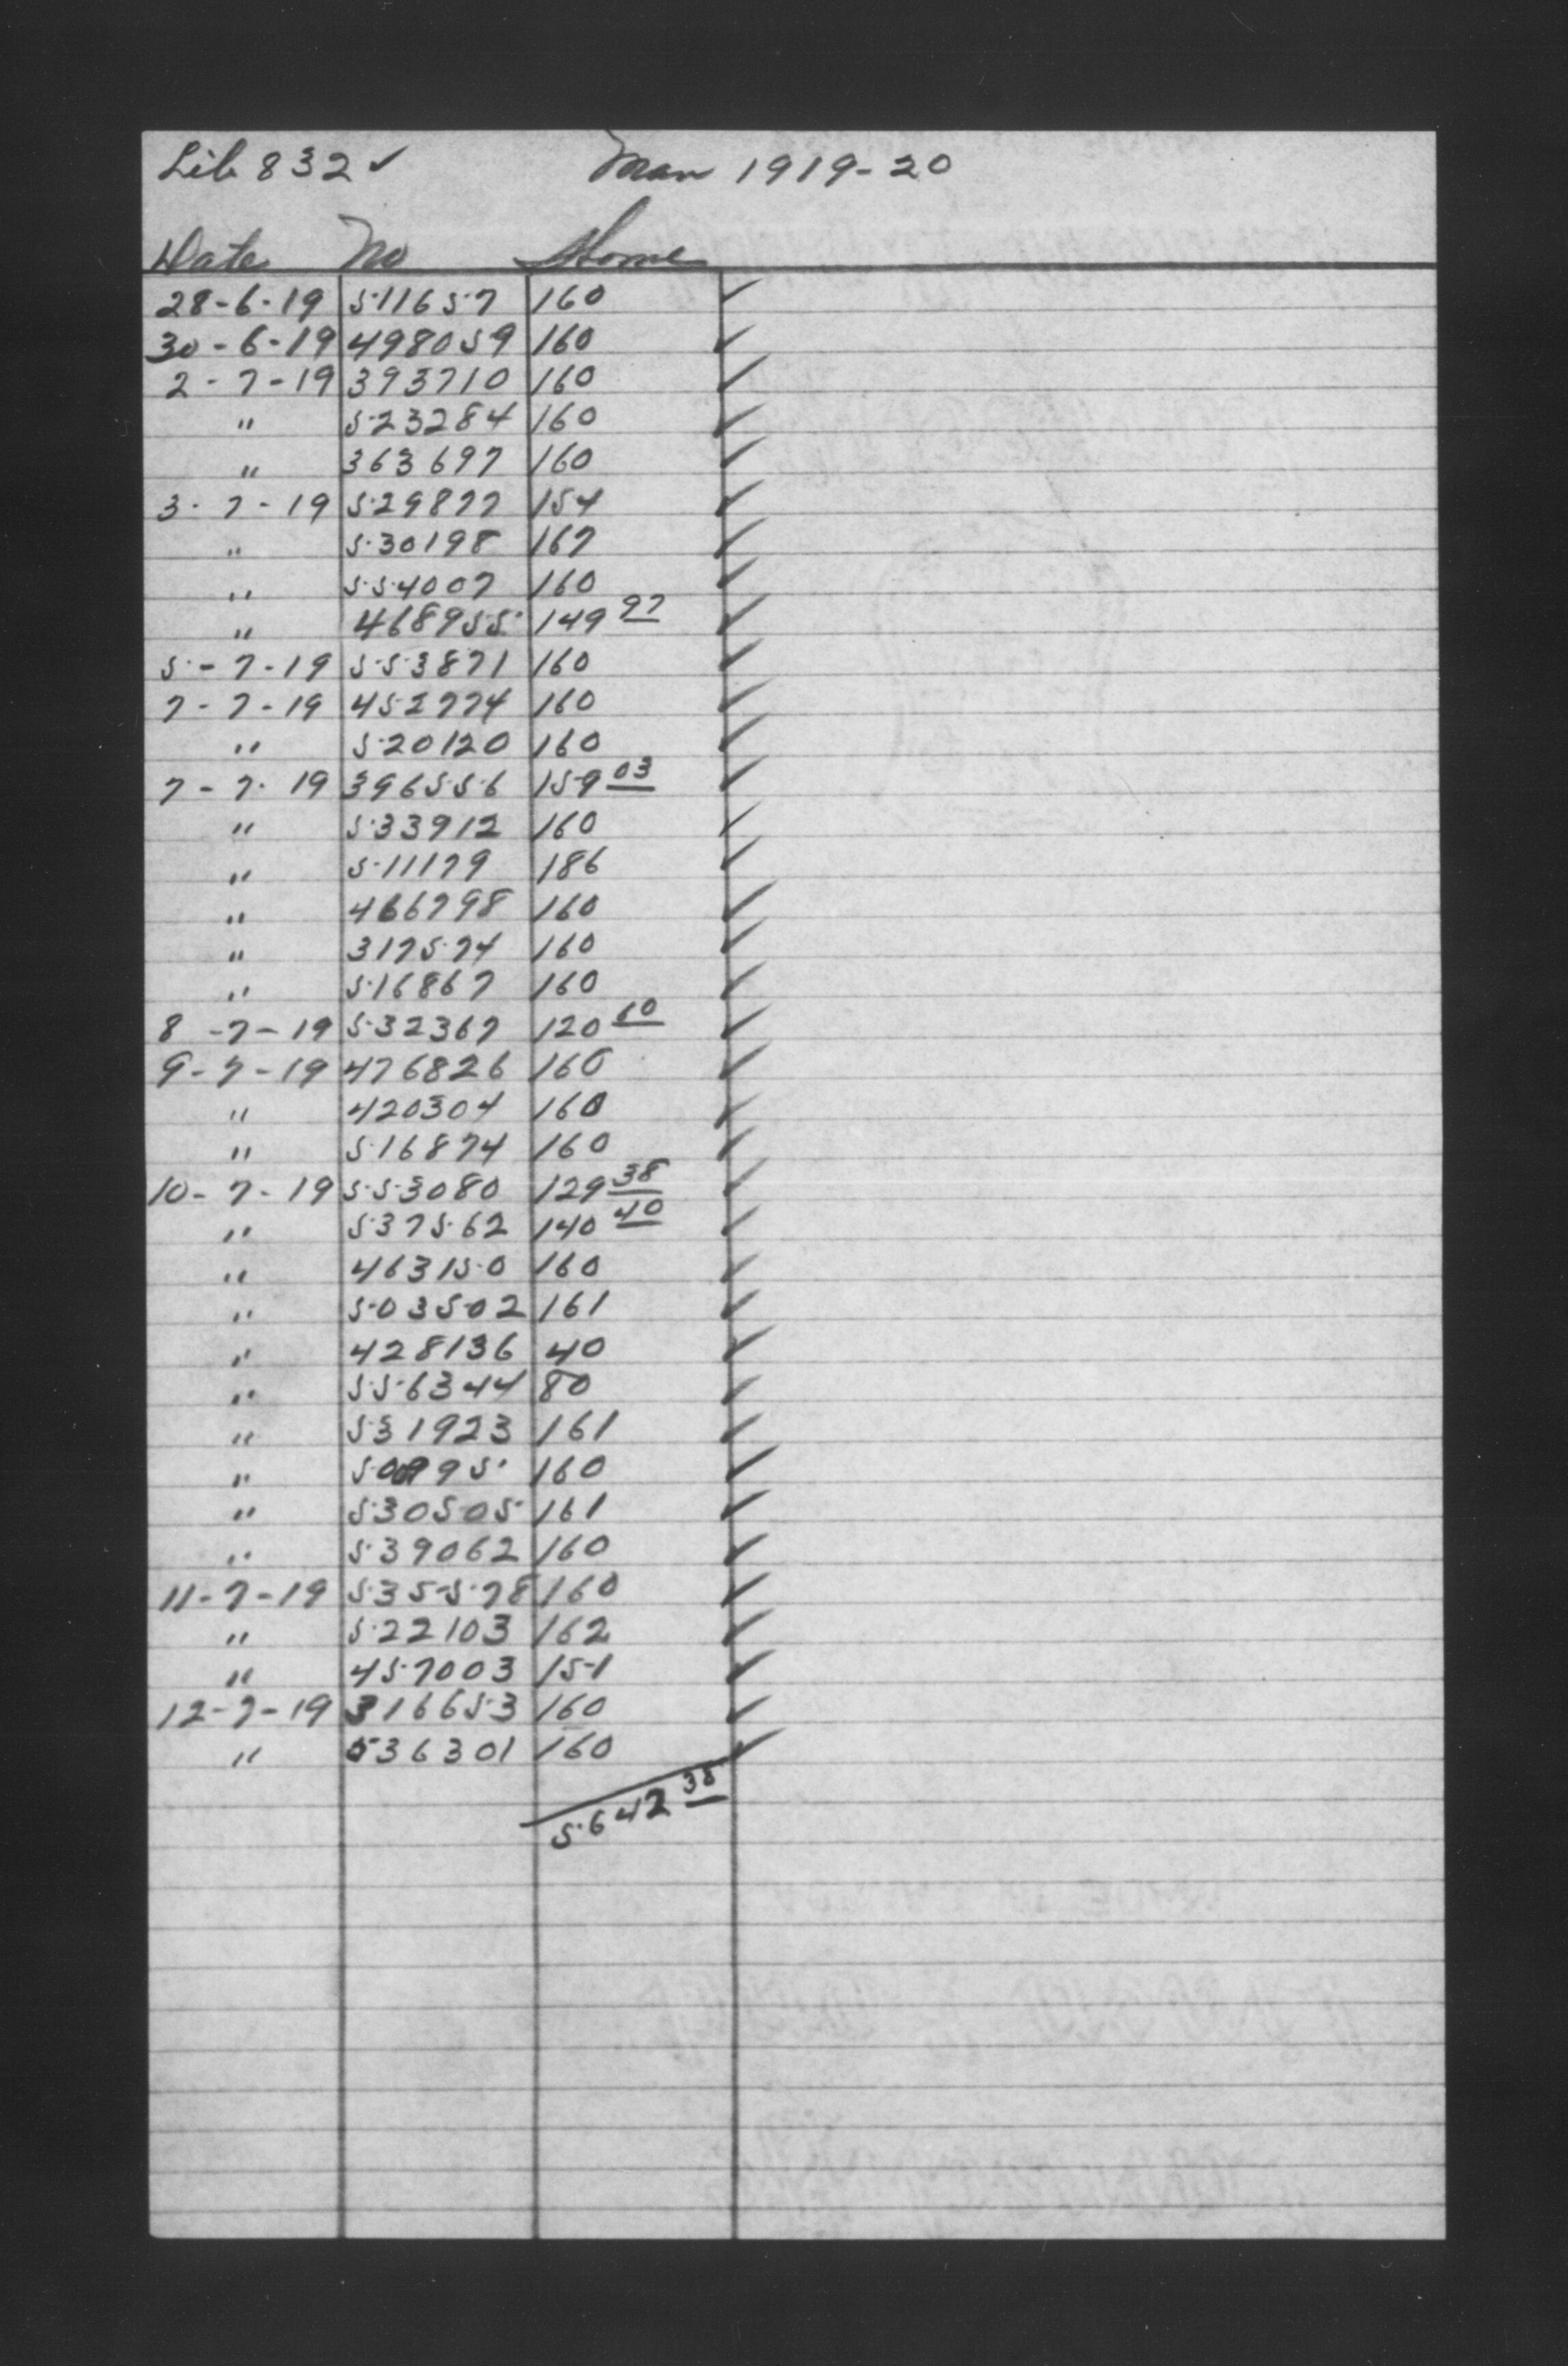 Lib 832 ✓ Man 1919-20
Date No Home
28-6-19 511657 160 ✓
30-6-19 498059 160 ✓
2-7-19 393710 160 ✓
" 523284 160 ✓
" 363697 160 ✓
3-7-19 529877 154 ✓
" 530198 167 ✓
" 554007 160 ✓
" 468955 149 97 ✓
5-7-19 553871 160 ✓
7-7-19 452774 160 ✓
" 520120 160 ✓
7-7-19 396556 159 03 ✓
" 533912 160 ✓
" 511179 186 ✓
" 466798 160 ✓
" 317574 160 ✓
" 516867 160 ✓
8-7-19 532367 120 60 ✓
9-7-19 476826 160 ✓
" 420304 160 ✓
" 516874 160 ✓
10-7-19 553080 129 38 ✓
" 537562 140 40 ✓
" 463150 160 ✓
" 503502 161 ✓
" 428136 40 ✓
" 556344 80 ✓
" 531923 161 ✓
" 160 ✓
" 530505 161 ✓
" 539062 160 ✓
11-7-19 535578 160 ✓
" 522103 162 ✓
" 457003 151 ✓
12-7-19 316653 160 ✓
" 536301 160 ✓
5642 38